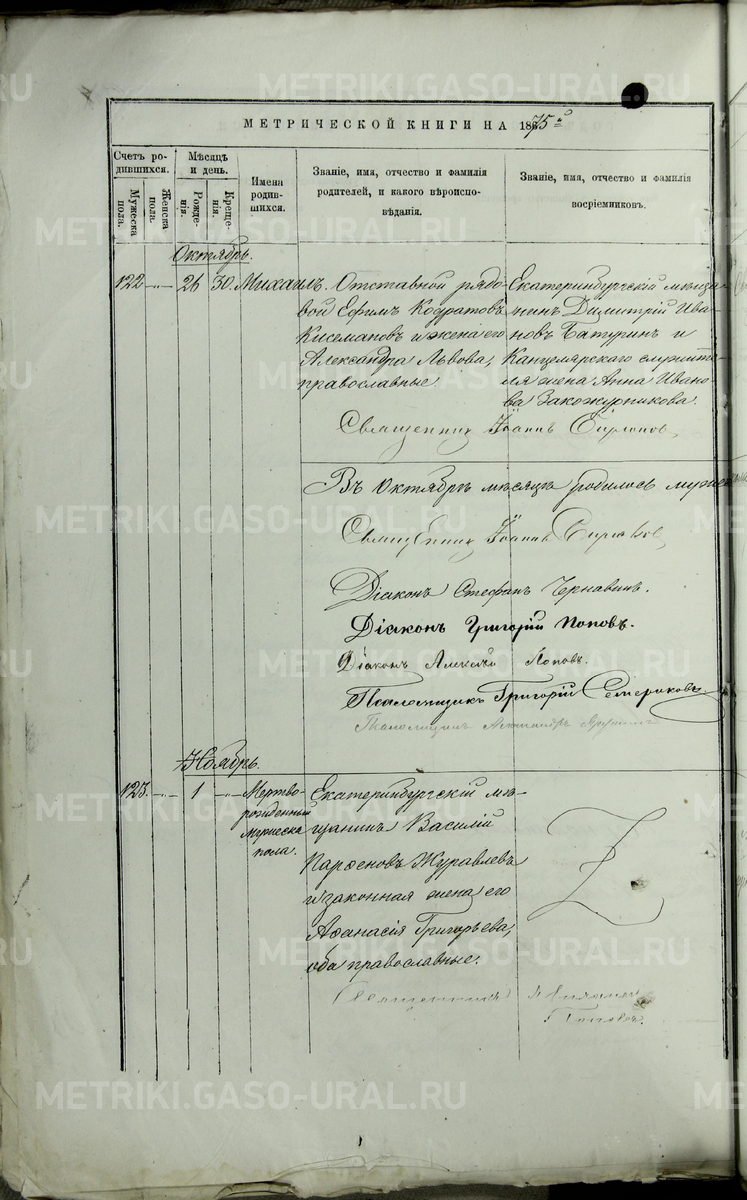 МЕТРИЧЕСКОЙ КНИГИ НА 1875 й
Счетъ ро-
дившихся.
Мужеска
пола.
Женска
пола.
Мѣсяцъ
и день.
Рожде-
нія.
Креще-
нія.
Имена
родив-
шихся.
Званіе, имя, отчество и фамилія
родителей, и какого вѣроиспо-
вѣданія.
Званіе, имя, отчество и фамилія
воспріемниковъ.
Октябрь.
122 26 30. Михаилъ.
Отставной рядо-
вой Ефимъ Кодратовъ
и жена его
Александра Львова,
православные.
Екатеринбургскій мѣща-
нинъ Димитрій Ива-
новъ Батуринъ и
Канцелярскаго служите-
ля жена Анна Ивано-
ва Закожурникова.
Священникъ Іоаннъ
Въ Октябрѣ мѣсяцѣ родилось
Священникъ Іоаннъ
Діаконъ Стефанъ Чернавинъ.
Діаконъ Григорій Поповъ.
Діаконъ Алексѣй Поповъ.
Псаломщикъ Григорій Семериковъ
Псаломщикъ Александръ
Ноябрь.
123. 1
Мертво-
рожденный
мужеска
пола.
Екатеринбургскій мѣ-
щанинъ Василій
Парѳеновъ Журавлевъ
и законная жена его
Аѳанасія Григорьева,
оба православные.
Священникъ
Поповъ.
METRIKI.GASO-URAL.RU